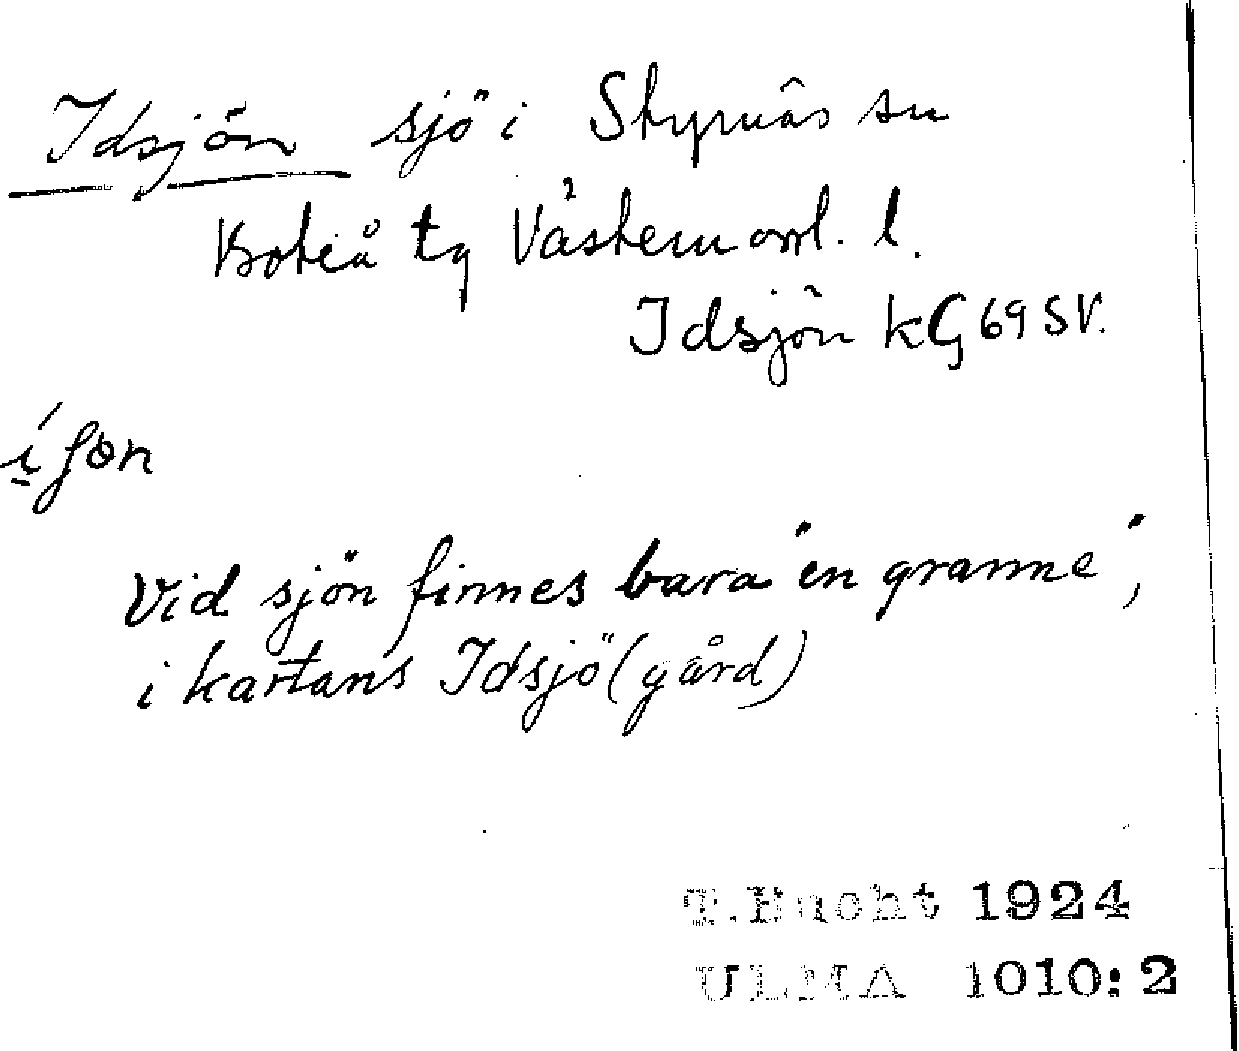 Idsjön sjö i Styrnäs sn
Boteå tg Västernorrl. l.
Idsjön kG 69 SV.
Vid sjön finnes bara "en granne",
i kartans Idsjö (gård)
T. Bucht 1924
ULMA 1010:2